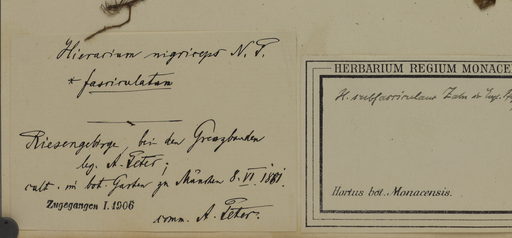 Hieracium nigriceps N. P.
* fasciculatum
Riesengebirge, bei den Grenzbauden
leg. A. Peter;
cult. im bot. Garten zu München 8. VI. 1881.
Zugegangen I. 1906
comm. A. Peter.
HERBARIUM REGIUM MONACEN
H. subfasciculans Zahn in
Hortus bot. Monacensis.